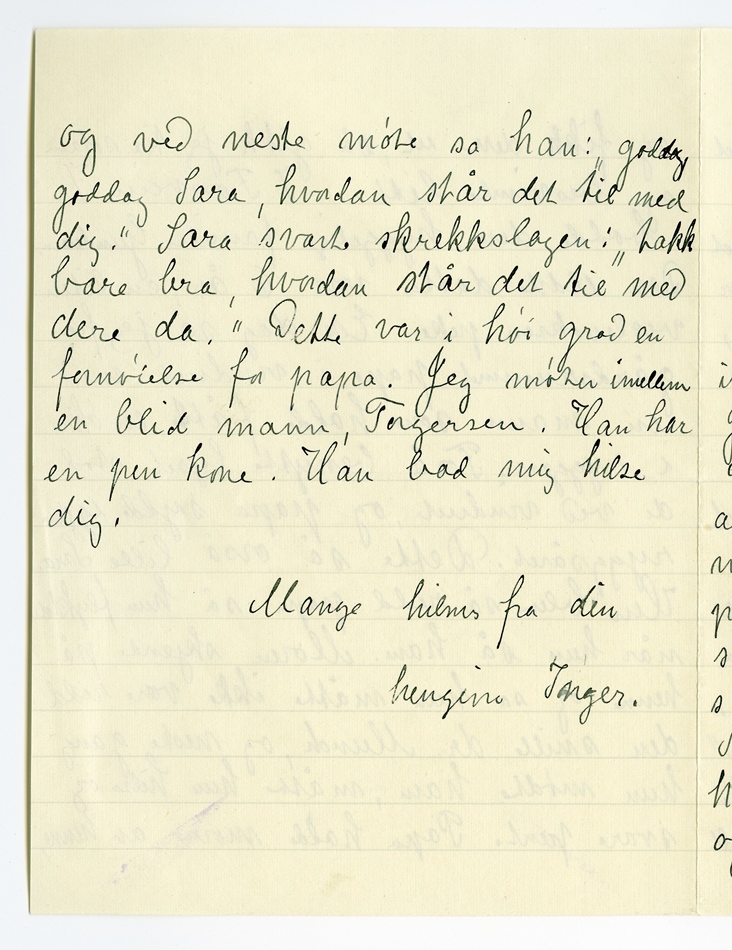 og ved neste møte sa han: „goddag,
goddag Sara, hvordan står det til med
dig." Sara svarte skrekkslagen: „takk
bare bra, hvordan står det til med
dere da." Dette var i høi grad en
fornøielse for papa. Jeg møter imellem
en blid mann, Torgersen. Han har
en pen kone. Han bad mig hilse
dig.
Mange hilsner fra din
hengivne Inger.